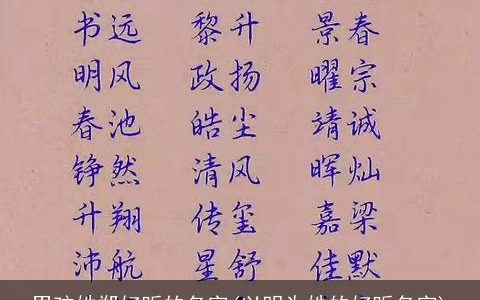 书远 黎升 景春
明风 政扬 曜宗
春池 皓尘 靖诚
铮然 清风 晖灿
升翔 传玺 嘉梁
沛航 星舒 佳默
男孩姓郑好听的名字(以明为姓的好听名字)